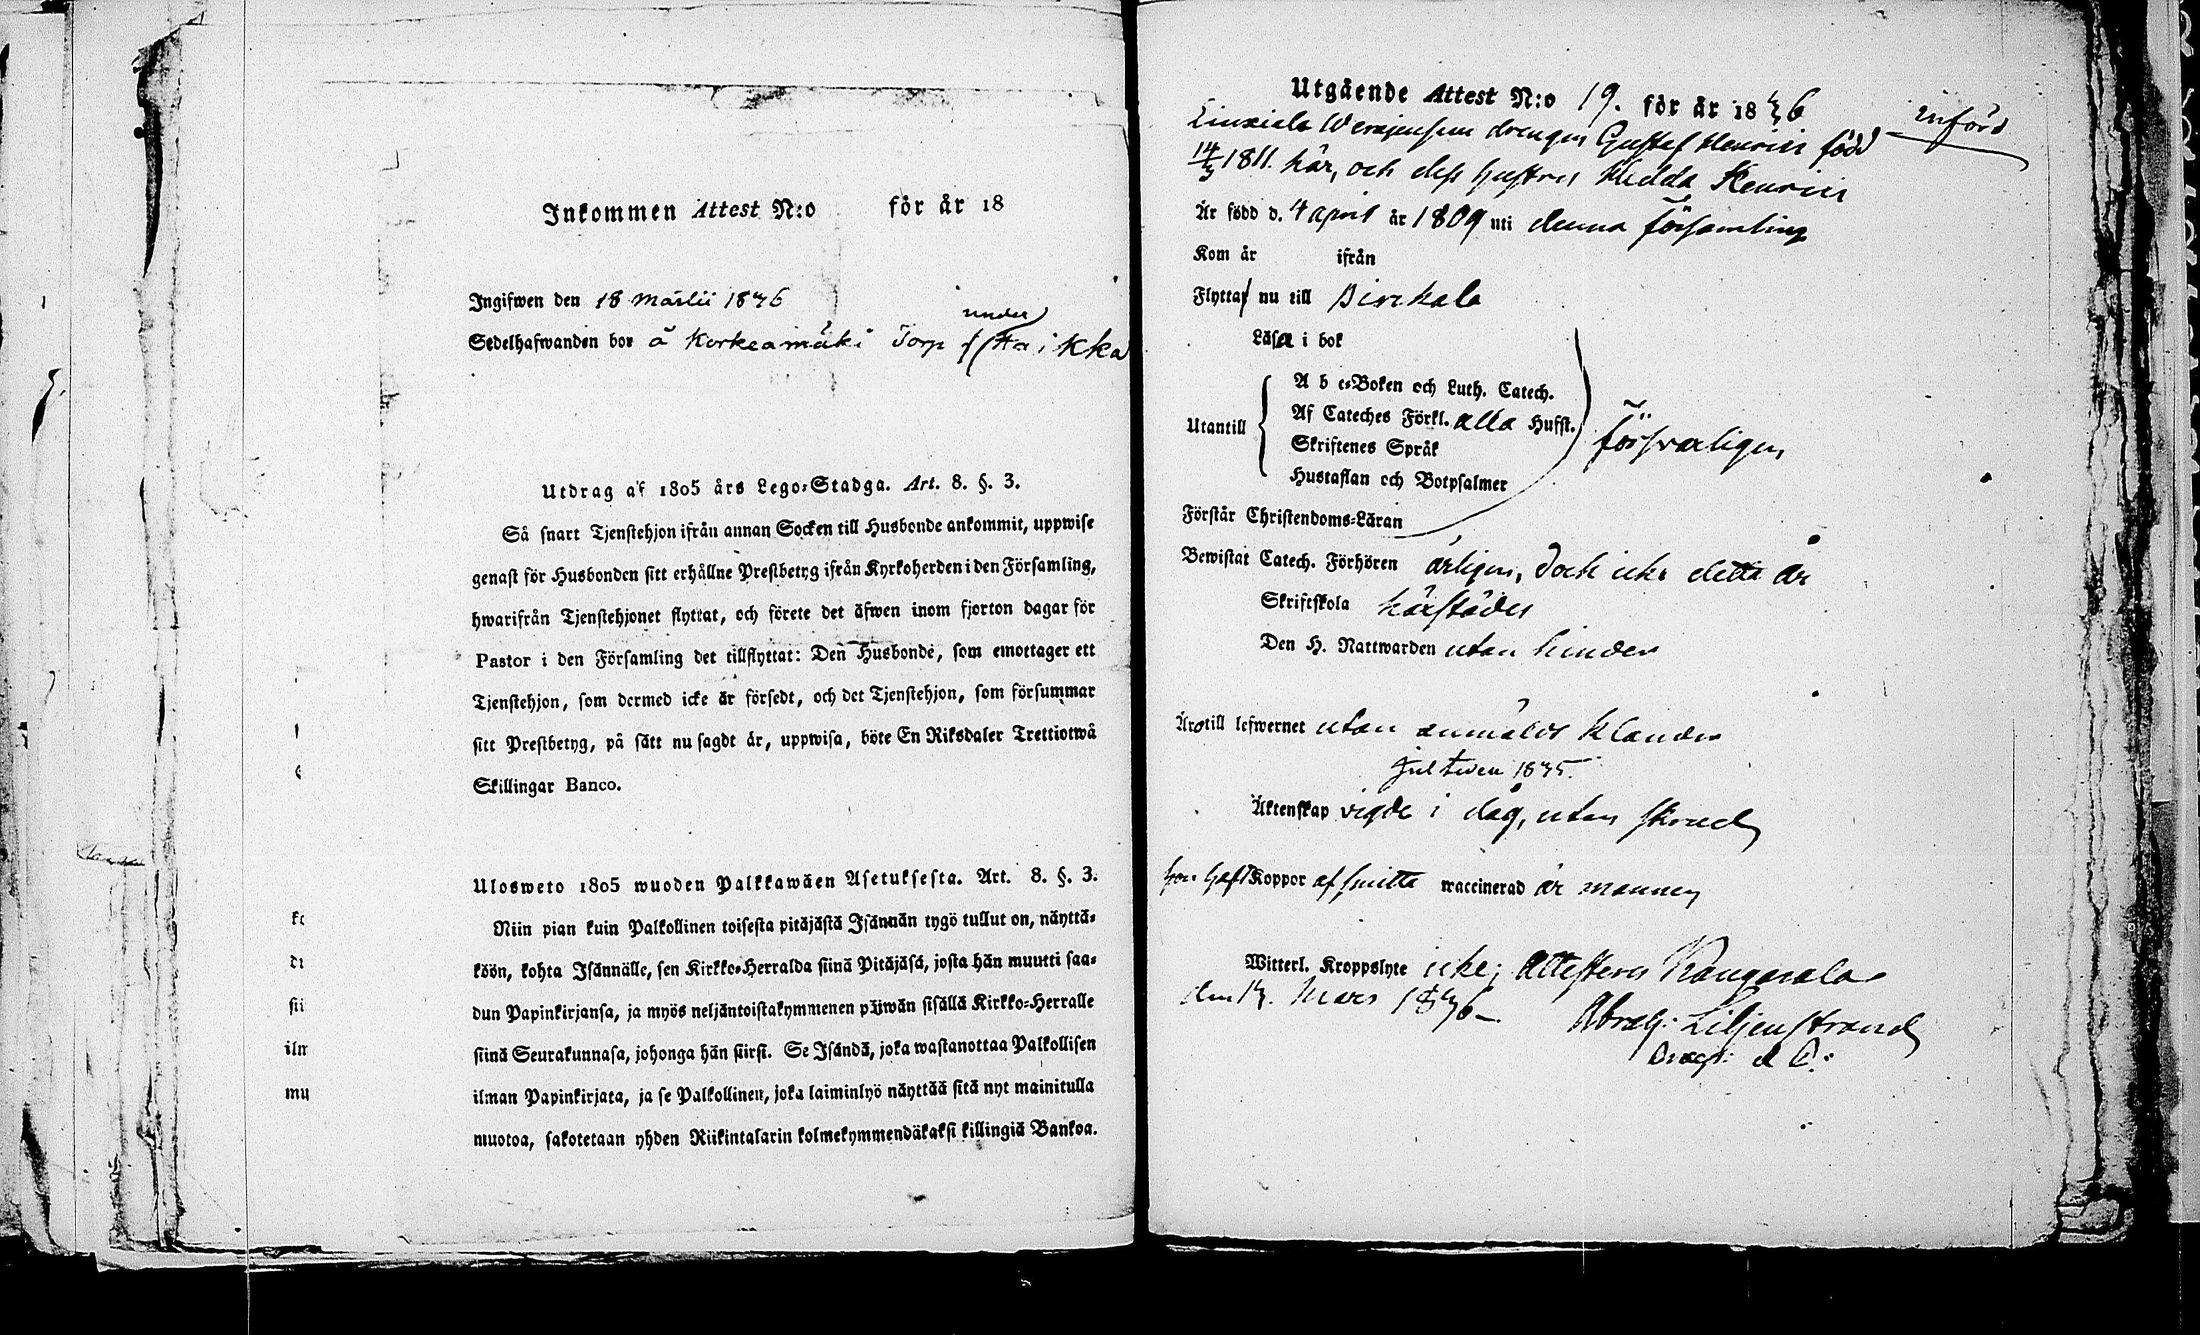 Inkommen Attest N:o för år 18
Ingifwen den 18 Martii 1846
under
Sedelhafwanden bor å Korkeamäki Torp
Utdrag af 1805 års Lego-Stadga. Art. 8. §. 3.
Så snart Tjenstehjon ifrån annan Socken till Husbonde ankommit, uppwise
genast för Husbonden sitt erhållne Prestbetyg ifrån Kyrkoherden i den Församling,
hwarifrån Tjenstehjonet flyttat, och förete det äfwen inom fjorton dagar för
Pastor i den Församling det tillflyttat: Den Husbonde, som emottager ett
Tjenstehjon, som dermed icke är försedt, och det Tjenstehjon, som försummar
sitt Prestbetyg, på sätt nu sagdt är, uppwisa, böte En Riksdaler Trettiotwå
Skillingar Banco.
Ulosweto 1805 wuoden Palkkawäen Asetuksesta. Art. 8. §. 3.
Niin pian kuin Palkollinen toisesta pitäjästä Isännän tygö tullut on, näyttä-
köön, kohta Isännälle, sen Kirkko-Herralda siinä Pitäjäsä, josta hän muutti saa-
dun Papinkirjansa, ja myös neljäntoistakymmenen päiwän sisällä Kirkko-Herralle
siinä Seurakunnasa, johonga hän siirsi. Se Isändä, joka wastanottaa Palkollisen
ilman Papinkirjata, ja se Palkollinen, joka laiminlyö näyttää sitä nyt mainitulla
muotoa, sakotetaan yhden Riikintalarin kolmekymmendäkaksi killingiä Bankoa.
Utgående Attest N:o 19. för år 1846
införd
Liuxiala drengen Gustaf Henrics född
14/3 1811. här, och dess hustru Hedda Henrics
Är född d. 4 april år 1809 uti denna församling
Kom år ifrån
Flyttar nu till Birckala
Läsa i bok
A b c-Boken och Luth. Catech.
Utantill Af Cateches Förkl. alla Hufst. försvarligen
Skriftenes Språk
Hustaflan och Botpsalmer
Förstår Christendoms-Läran
Bewistat Catech. Förhören årligen, dock icke detta år
Skriftskola härstädes
Den H. Nattwarden utan hinder
Äro till lefwernet utan anmäldt klander
Jultiden 1845.
Äktenskap vigde i dag, utan skrud
hon haft Koppor af smitta waccinerad är mannen
Witterl. Kroppslyte icke; Attesteras Kangasala
den 17. Mars 1846
Abrah: Liljenstrand